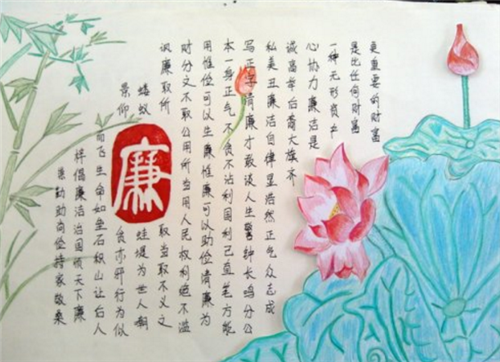 更重要的财富
是比任何财富
一种无形资产
心协力廉洁是
诚高举大旗齐
私美丑廉洁自律显浩然正气众志成
写正字清廉才敢谈人生警钟长鸣分公
本一身正气不贪不沾利国利己笔方能
用惟俭可以生廉惟廉可以助俭清廉为
时分文不取公用所当用人民权利绝不滥
讽廉取所取当取不义之
蝼蚁堤为世人嘲
景仰贪行为似
而飞生命如垒石积山让后人
样倡廉洁治国顺天下廉
勤助俭持家
廉